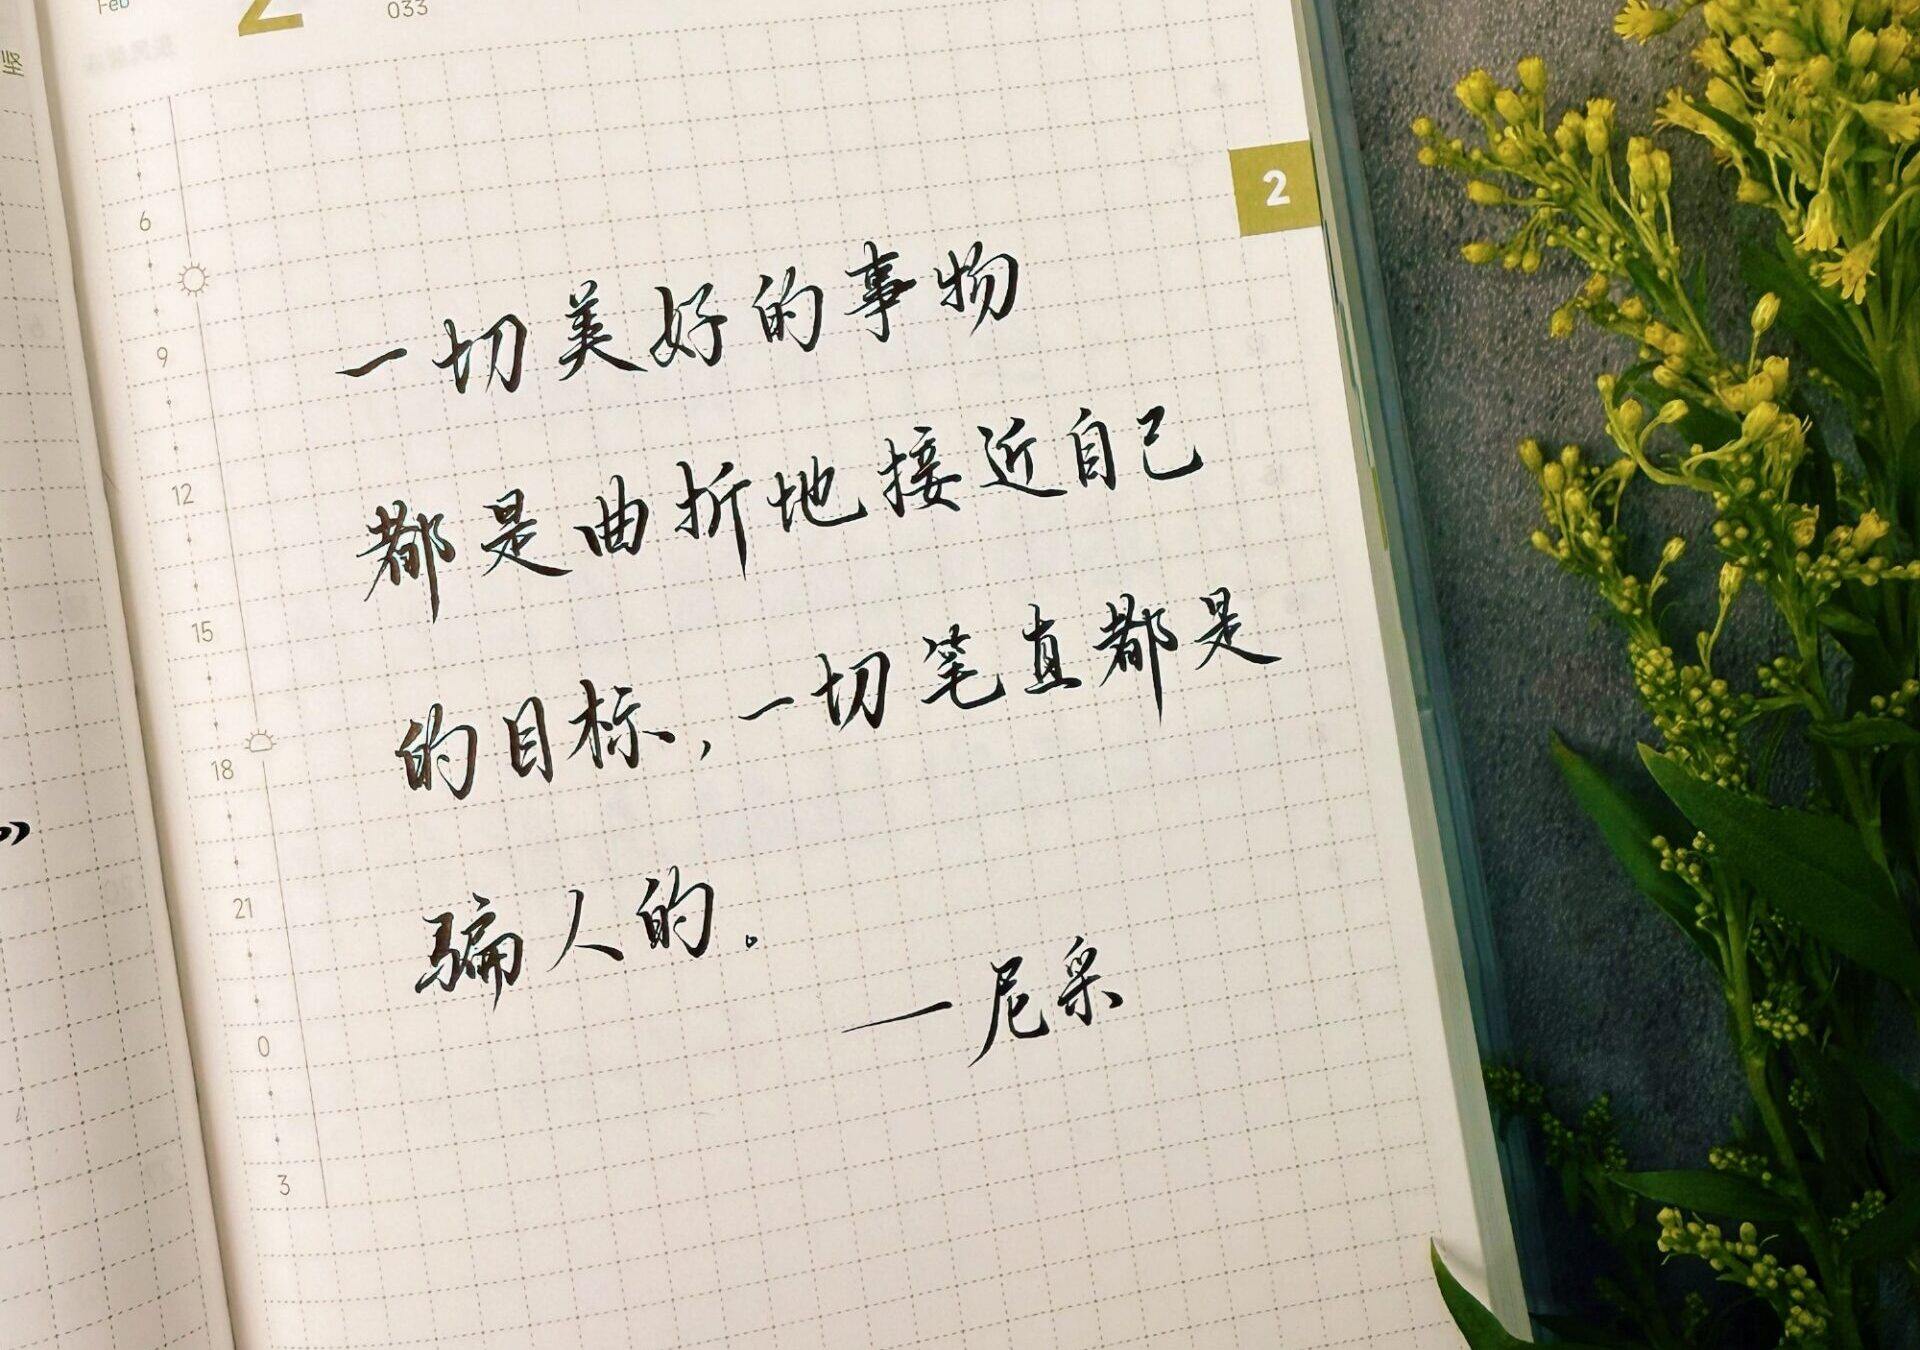 Feb 2 033
坚
2
6
9
12
15
18
21
0
3
一切美好的事物
都是曲折地接近自己
的目标,一切笔直都是
骗人的。
—尼采
”